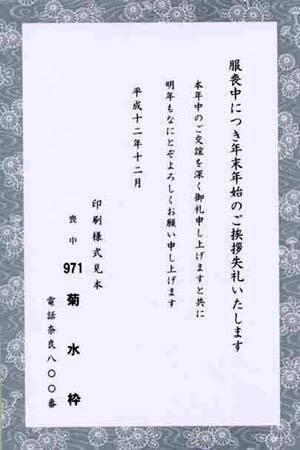 服喪中につき年末年始のご挨拶失礼いたします
本年中のご交誼を深く御礼申し上げますと共に
明年もなにとぞよろしくお願い申し上げます
平成十二年十二月
印刷様式見本
喪中
971 菊水枠
電話奈良八〇〇番